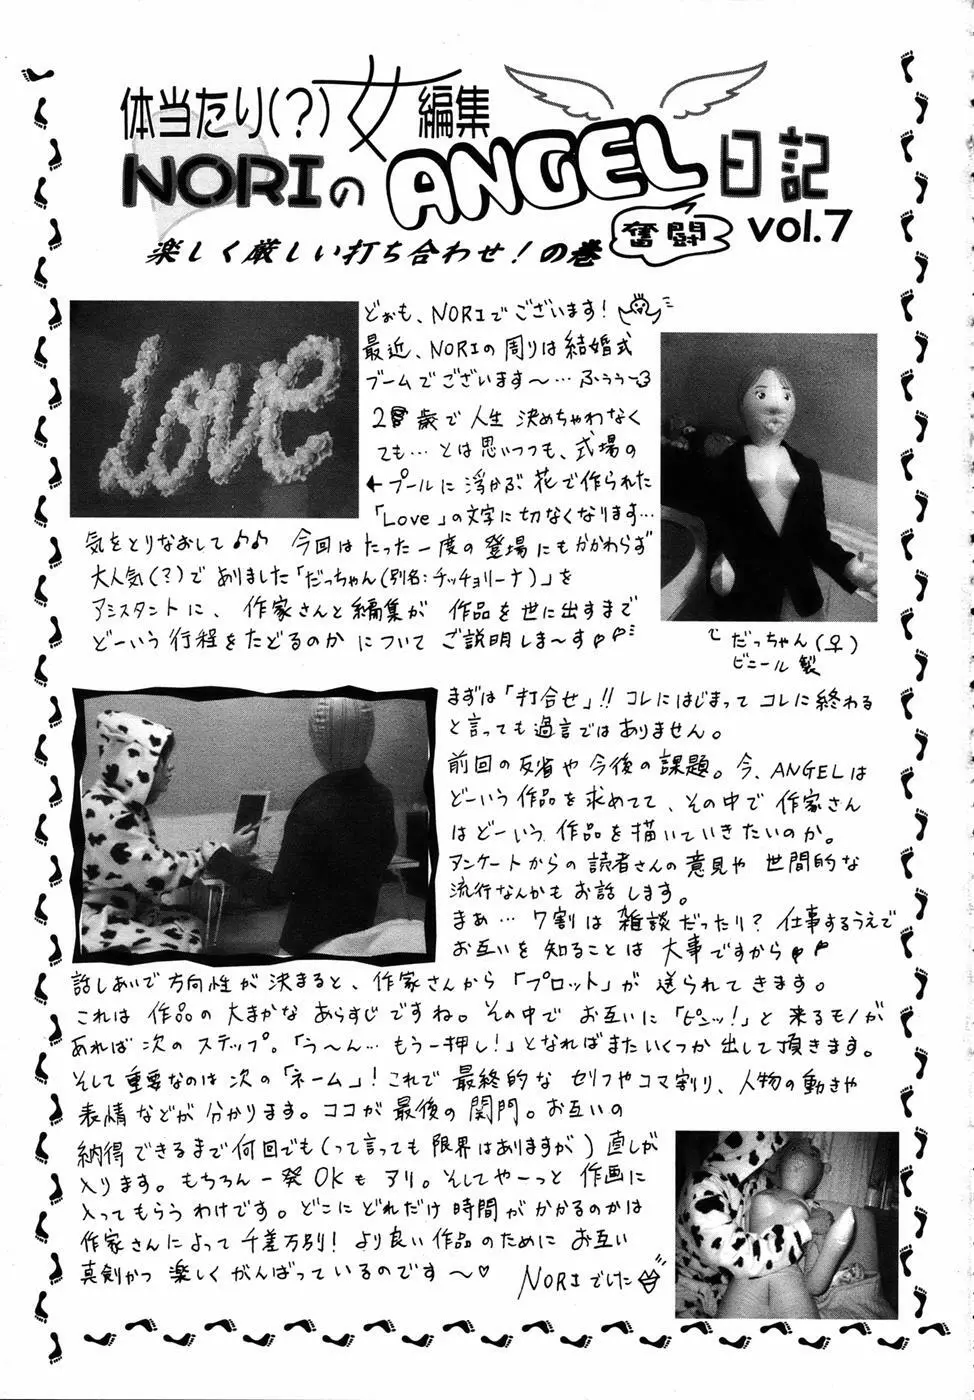 体当たり(?)女編集
NORIのANGEL日記
奮闘
vol.7
楽しく厳しい打ち合わせ!の巻
どぉも、NORIでございます!
最近、NORIの周りは結婚式
ブームでございます〜…ふぅぅ〜
歳で人生 決めちゃわなく
ても…とは思いつつも、式場の
←プールに浮かぶ 花で作られた
「Love」の文字に切なくなります…
気をとりなおして♪♪ 今回はたった一度の登場にもかかわらず
大人気(?)でありました「だっちゃん(別名:チッチョリーナ)」を
アシスタントに、作家さんと編集が 作品を世に出すまで
どーいう行程をたどるのかについて ご説明しま〜す♪♪
だっちゃん(♀)
ビニール製
まずは「打合せ」!! コレにはじまって コレに終わる
と言っても過言ではありません。
前回の反省や今後の課題。今、ANGELは
どーいう作品を求めてて、その中で作家さん
はどーいう作品を描いていきたいのか。
アンケートからの読者さんの意見や 世間的な
流行なんかもお話します。
まぁ…7割は雑談だったり? 仕事するうえで
お互いを知ることは大事ですから♪♪
話しあいで方向性が決まると、作家さんから「プロット」が送られてきます。
これは作品の大まかなあらすじですね。その中でお互いに「ピンッ!」と来るモノが
あれば次のステップ。「う〜ん…もう一押し!」となればまたいくつか出して頂きます。
そして重要なのは次の「ネーム」! これで最終的なセリフやコマ割り、人物の動きや
表情などが分かります。ココが最後の関門。お互いの
納得できるまで何回でも(って言っても限界はありますが)直しが
入ります。もちろん一発OKもアリ。そしてや〜っと作画に
入ってもらうわけです。どこにどれだけ時間がかかるのかは
作家さんによって千差万別! より良い作品のためにお互い
真剣かつ楽しくがんばっているのです〜♡
NORIでした